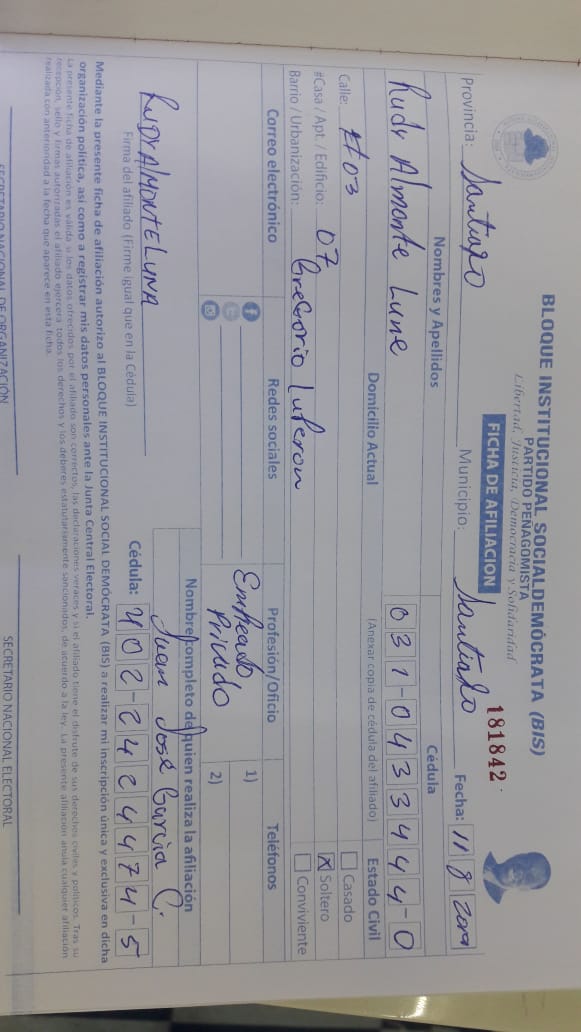 BLOQUE INSTITUCIONAL SOCIALDEMÓCRATA (BIS)
PARTIDO PEÑAGOMISTA
Libertad, Justicia, Democracia y Solidaridad
FICHA DE AFILIACION
181842
Provincia: Santiago Municipio: Santiado Fecha: 11 8 2019
Nombres y Apellidos Cédula
Rudy Almonte Lune 031-0433444-0
Domicilio Actual (Anexar copia de cédula del afiliado) Estado Civil
Calle: #03 Casado
#Casa / Apt. / Edificio: 07 X Soltero
Barrio / Urbanización: Gregorio Luperon Conviviente
Correo electrónico Redes sociales Profesión/Oficio Teléfonos
Empeado 1)
Privado 2)
Nombre completo de quien realiza la afiliación
Juan José Garcia C.
RUDY ALMONTE LUNA
Firma del afiliado (Firme igual que en la Cédula) Cédula: 402-2424474-5
Mediante la presente ficha de afiliación autorizo al BLOQUE INSTITUCIONAL SOCIAL DEMÓCRATA (BIS) a realizar mi inscripción única y exclusiva en dicha
organización política, así como a registrar mis datos personales ante la Junta Central Electoral.
La presente ficha de afiliación es válida si los datos ofrecidos por el afiliado son correctos, las declaraciones veraces y si el afiliado tiene el disfrute de sus derechos civiles y políticos. Tras su
recepción, sello y firmas autorizadas el afiliado ejercerá todos los derechos y los deberes estatutariamente sancionados, de acuerdo a la ley. La presente afiliación anula cualquier afiliación
realizada con anterioridad a la fecha que aparece en esta ficha.
SECRETARIO NACIONAL DE ORGANIZACIÓN SECRETARIO NACIONAL ELECTORAL